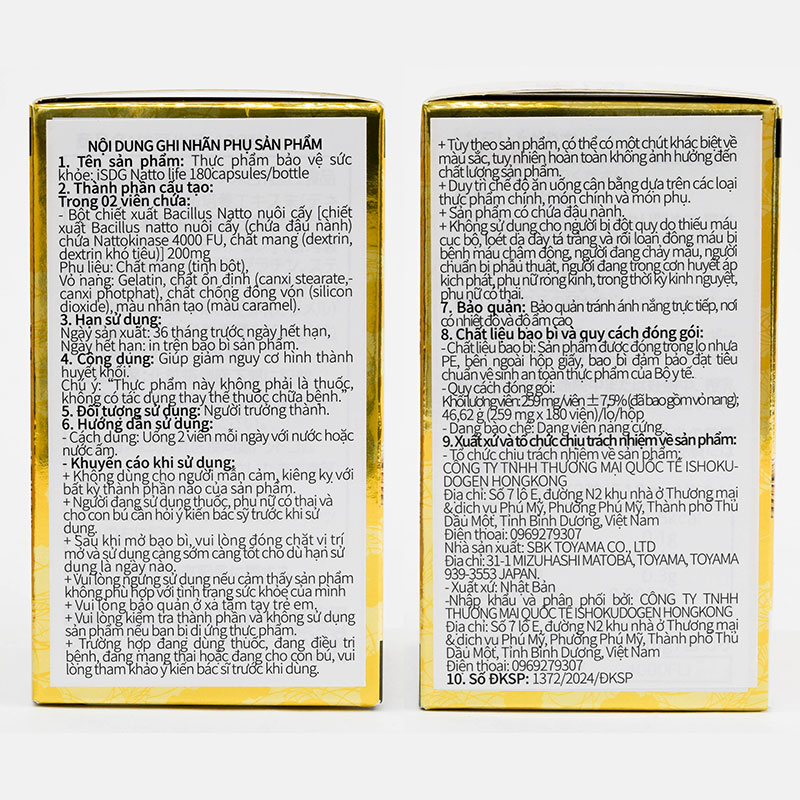 NỘI DUNG GHI NHÃN PHỤ SẢN PHẨM
1. Tên sản phẩm: Thực phẩm bảo vệ sức
khỏe: iSDG Natto life 180capsules/bottle
2. Thành phần cấu tạo:
Trong 02 viên chứa:
- Bột chiết xuất Bacillus Natto nuôi cấy [chiết
xuất Bacillus natto nuôi cấy (chứa đậu nành)
chứa Nattokinase 4000 FU, chất mang (dextrin,
dextrin khó tiêu)] 200mg
Phụ liệu: Chất mang (tinh bột),
Vỏ nang: Gelatin, chất ổn định (canxi stearate,-
canxi photphat), chất chống đông vón (silicon
dioxide), màu nhân tạo (màu caramel).
3. Hạn sử dụng:
Ngày sản xuất: 36 tháng trước ngày hết hạn,
Ngày hết hạn: in trên bao bì sản phẩm.
4. Công dụng: Giúp giảm nguy cơ hình thành
huyết khối.
Chú ý: “Thực phẩm này không phải là thuốc,
không có tác dụng thay thế thuốc chữa bệnh.”
5. Đối tượng sử dụng: Người trưởng thành.
6. Hướng dẫn sử dụng:
- Cách dùng: Uống 2 viên mỗi ngày với nước hoặc
nước ấm.
- Khuyến cáo khi sử dụng:
+ Không dùng cho người mẫn cảm, kiêng kỵ với
bất kỳ thành phần nào của sản phẩm.
+ Người đang sử dụng thuốc, phụ nữ có thai và
cho con bú cần hỏi ý kiến bác sỹ trước khi sử
dụng.
+ Sau khi mở bao bì, vui lòng đóng chặt vị trí
mở và sử dụng càng sớm càng tốt cho dù hạn sử
dụng là ngày nào.
+ Vui lòng ngừng sử dụng nếu cảm thấy sản phẩm
không phù hợp với tình trạng sức khỏe của mình
+ Vui lòng bảo quản ở xa tầm tay trẻ em,
+ Vui lòng kiểm tra thành phần và không sử dụng
sản phẩm nếu bạn bị dị ứng thực phẩm.
+ Trường hợp đang dùng thuốc, đang điều trị
bệnh, đang mang thai hoặc đang cho con bú, vui
lòng tham khảo ý kiến bác sĩ trước khi dùng.
+ Tùy theo sản phẩm, có thể có một chút khác biệt về
màu sắc, tuy nhiên hoàn toàn không ảnh hưởng đến
chất lượng sản phẩm.
+ Duy trì chế độ ăn uống cân bằng dựa trên các loại
thực phẩm chính, món chính và món phụ.
+ Sản phẩm có chứa đậu nành.
+ Không sử dụng cho người bị đột quỵ do thiếu máu
cục bộ, loét dạ dày tá tràng và rối loạn đông máu bị
bệnh máu chậm đông, người đang chảy máu, người
chuẩn bị phẫu thuật, người đang trong cơn huyết áp
kịch phát, phụ nữ rong kinh, trong thời kỳ kinh nguyệt,
phụ nữ có thai.
7. Bảo quản: Bảo quản tránh ánh nắng trực tiếp, nơi
có nhiệt độ và độ ẩm cao
8. Chất liệu bao bì và quy cách đóng gói:
- Chất liệu bao bì: Sản phẩm được đóng trong lọ nhựa
PE, bên ngoài hộp giấy, bao bì đảm bảo đạt tiêu
chuẩn vệ sinh an toàn thực phẩm của Bộ y tế.
- Quy cách đóng gói:
Khối lượng viên: 259 mg/viên ± 7,5% (đã bao gồm vỏ nang);
46,62 g (259 mg x 180 viên)/lọ/hộp
- Dạng bào chế: Dạng viên nang cứng.
9. Xuất xứ và tổ chức chịu trách nhiệm về sản phẩm:
- Tổ chức chịu trách nhiệm về sản phẩm:
CÔNG TY TNHH THƯƠNG MẠI QUỐC TẾ ISHOKU-
DOGEN HONGKONG
Địa chỉ: Số 7 lô E, đường N2 khu nhà ở Thương mại
& dịch vụ Phú Mỹ, Phường Phú Mỹ, Thành phố Thủ
Dầu Một, Tỉnh Bình Dương, Việt Nam
Điện thoại: 0969279307
Nhà sản xuất: SBK TOYAMA CO., LTD
Địa chỉ: 31-1 MIZUHASHI MATOBA, TOYAMA, TOYAMA
939-3553 JAPAN.
- Xuất xứ: Nhật Bản
-Nhập khẩu và phân phối bởi: CÔNG TY TNHH
THƯƠNG MẠI QUỐC TẾ ISHOKUDOGEN HONGKONG
Địa chỉ: Số 7 lô E, đường N2 khu nhà ở Thương mại
& dịch vụ Phú Mỹ, Phường Phú Mỹ, Thành phố Thủ
Dầu Một, Tỉnh Bình Dương, Việt Nam
Điện thoại: 0969279307
10. Số ĐKSP: 1372/2024/ĐKSP